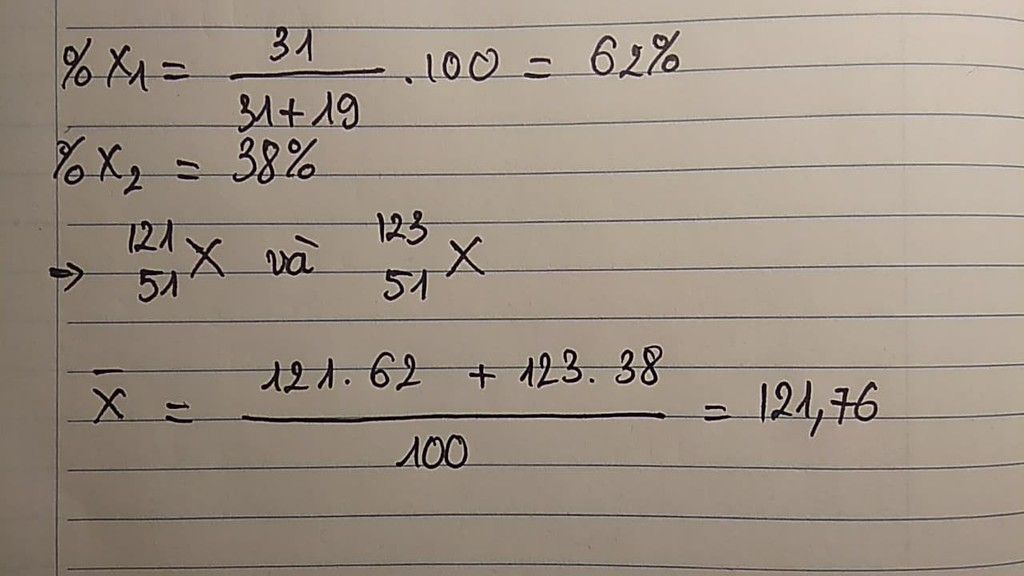 %X₁ = 31 / (31+19) .100 = 62%
%X₂ = 38%
→ ¹²¹₅₁X và ¹²³₅₁X
X̄ = (121.62 + 123.38) / 100 = 121,76